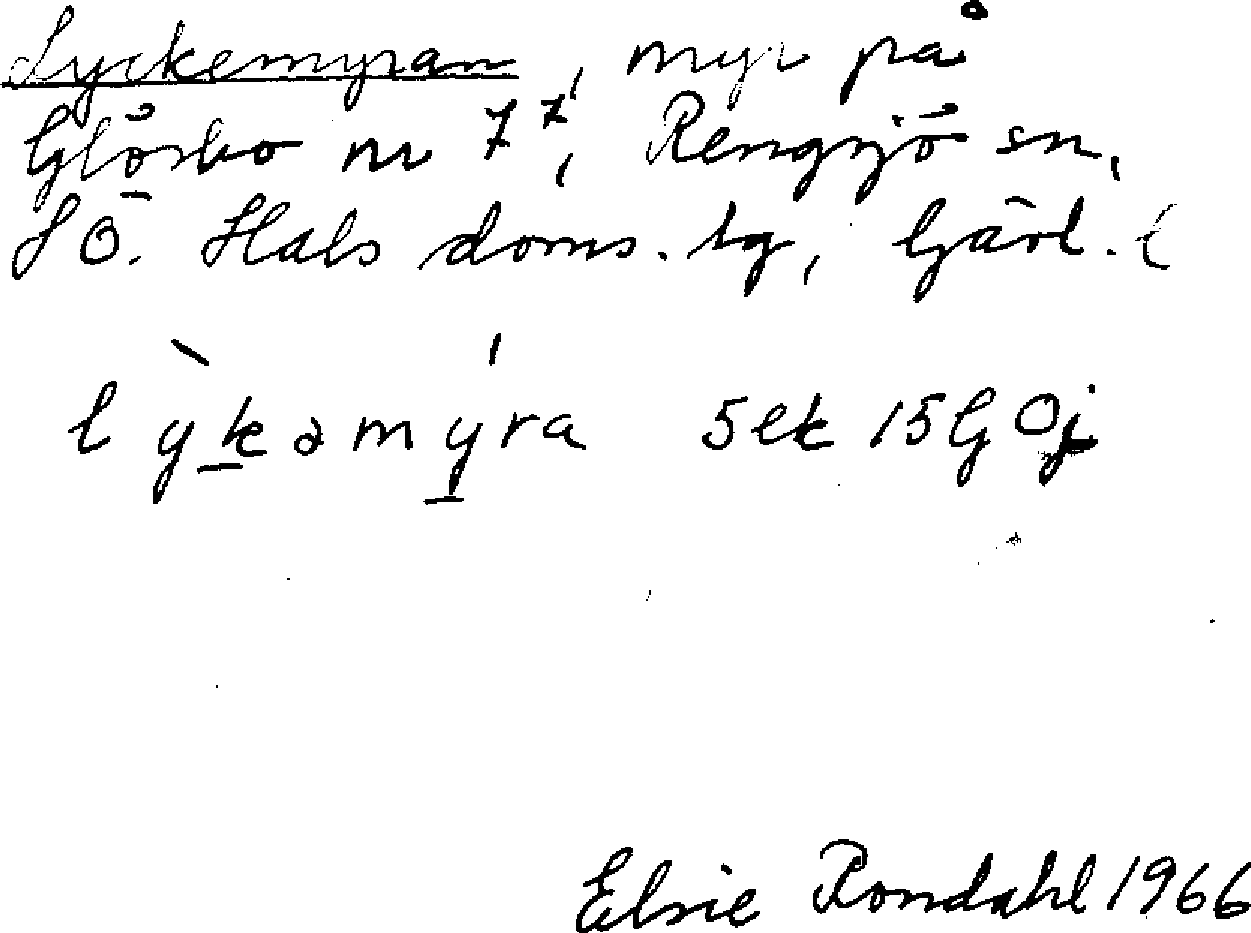 Lyckemyran, myr på
Glösbo nr 7⁷, Rengsjö sn,
SÖ. Häls doms. tg, Gävl. l
lỳkəmýra 5ek 15G0j
Elsie Rondahl 1966